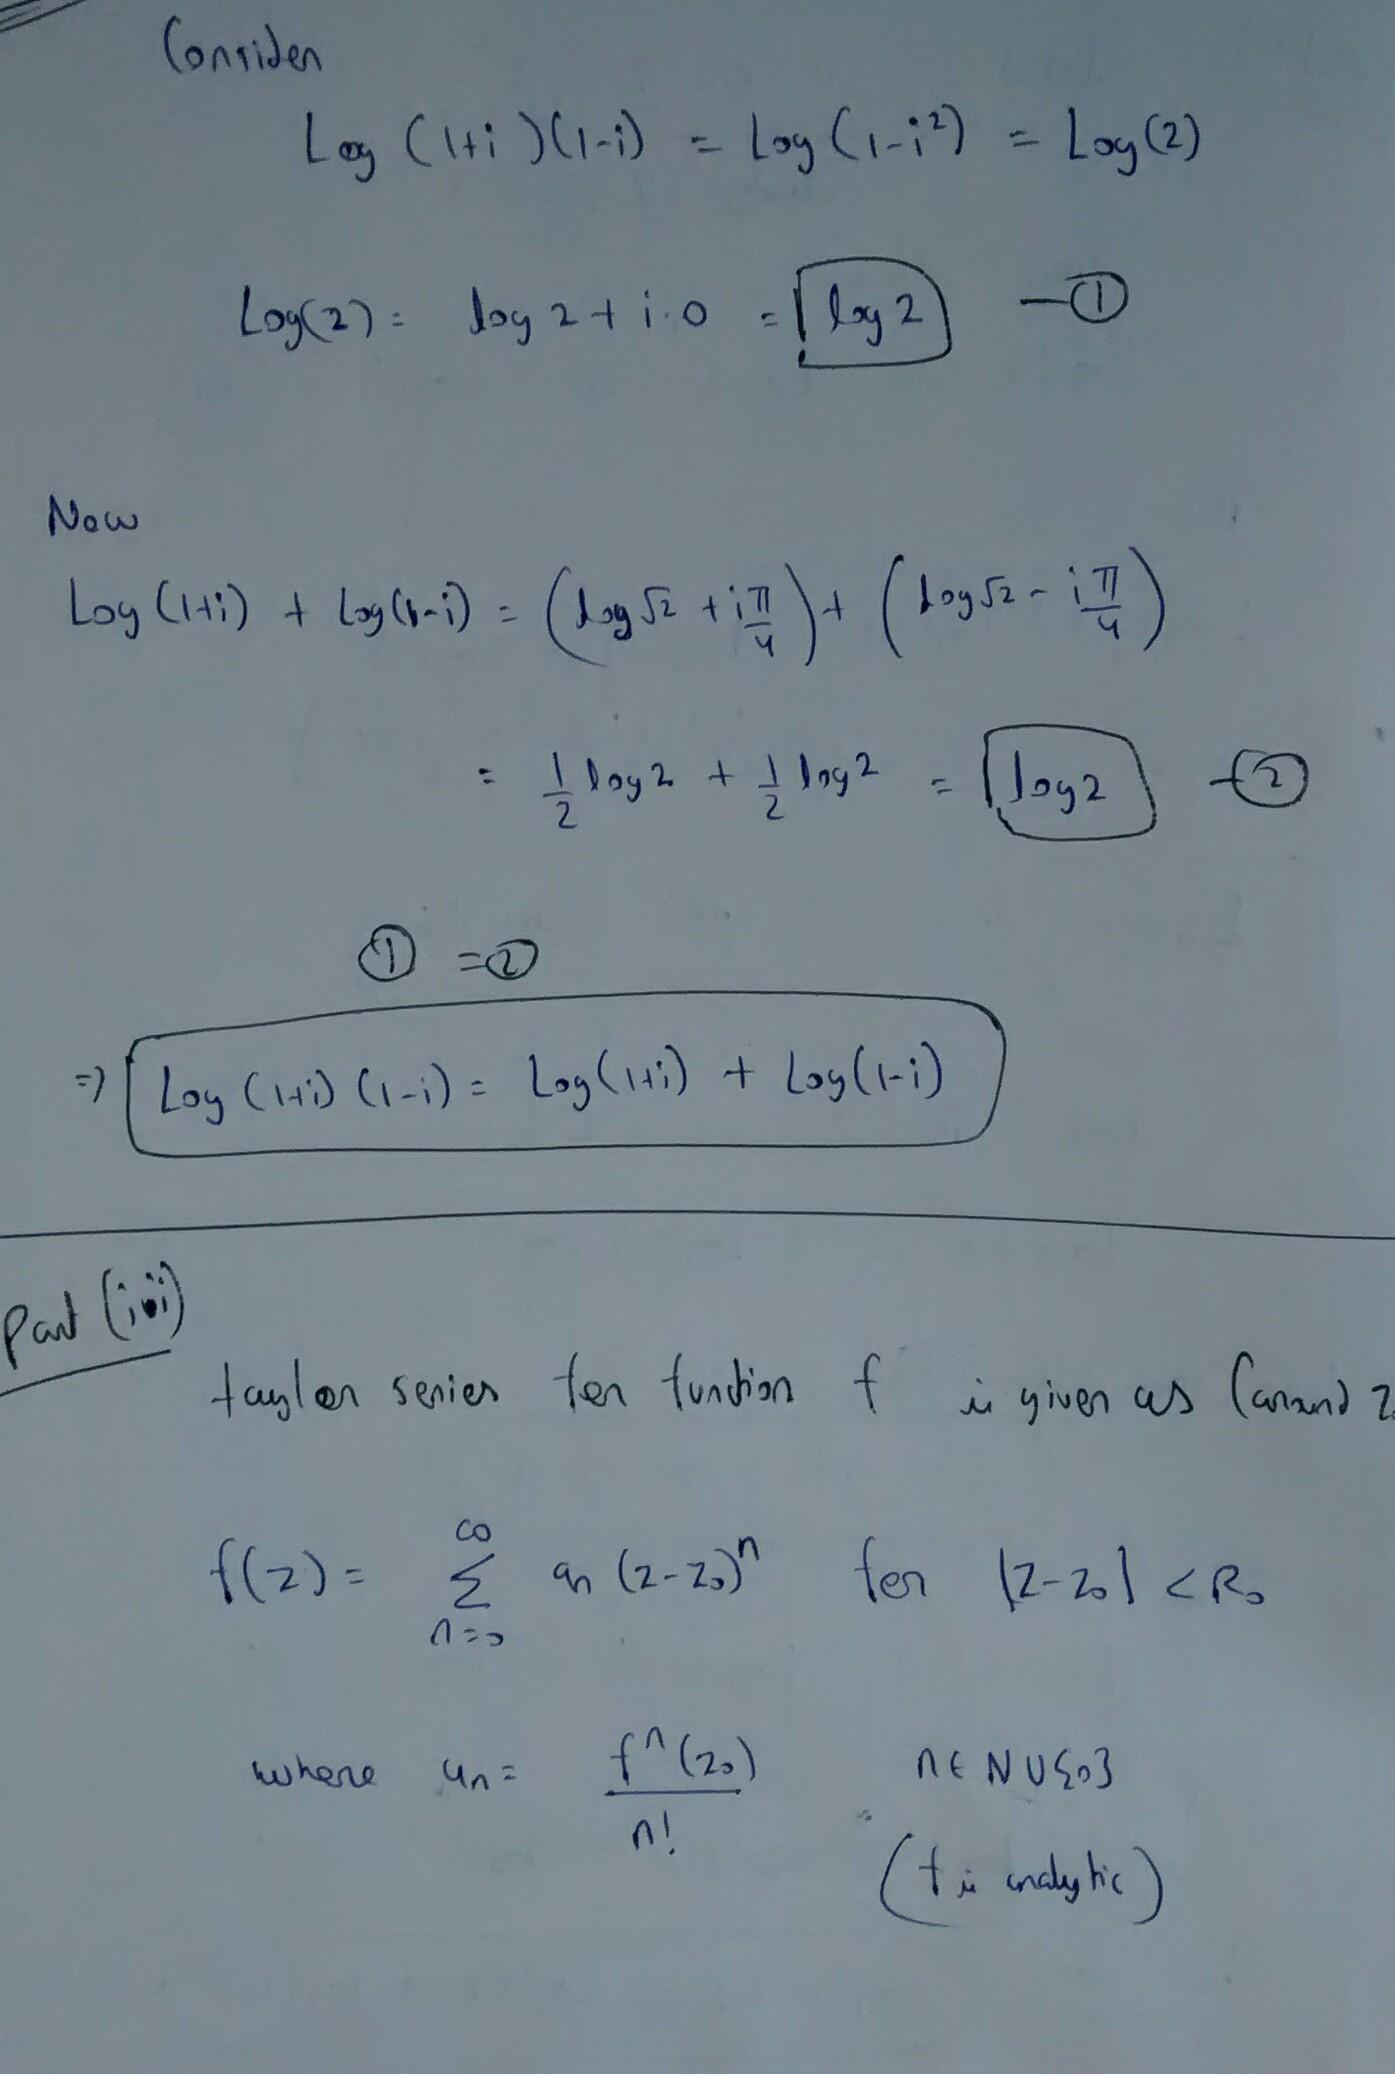 Consider
Log (1+i)(1-i) = Log (1-i²) = Log(2)
Log(2) = log 2 + i.0 = log 2 — ①
Now
Log (1+i) + Log(1-i) = (log √2 + i π/4) + (log √2 - i π/4)
= 1/2 log 2 + 1/2 log 2 = log 2 — ②
① = ②
⇒ Log (1+i) (1-i) = Log(1+i) + Log(1-i)
Part (iii)
taylor series for function f is given as (around z₀
f(z) = ∞ Σ n=0 aₙ (z-z₀)ⁿ for |z-z₀| < R₀
where aₙ = fⁿ(z₀) / n! n ∈ N ∪ {0}
(f is analytic)